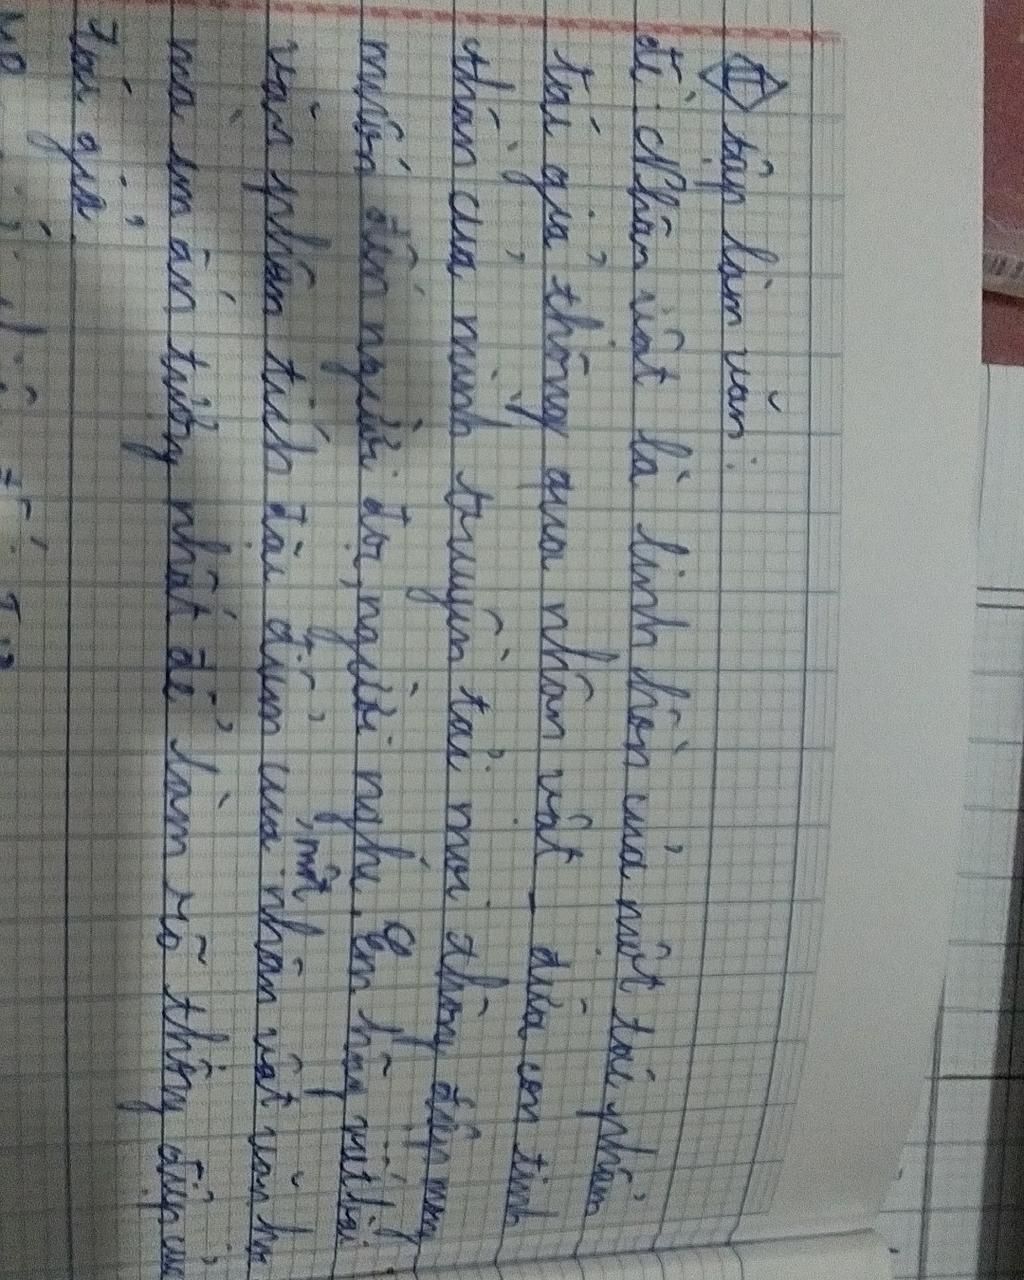 II tập làm văn:
đề: Nhân vật là linh hồn của một tác phẩm
tác giả thông qua nhân vật - đứa con tinh
thần của mình truyền tải mọi thông điệp mong
muốn đến người đọc, người nghe. Em hãy viết bài
văn phân tích đặc điểm của một nhân vật văn học
mà em ấn tượng nhất để làm rõ thông điệp của
tác giả